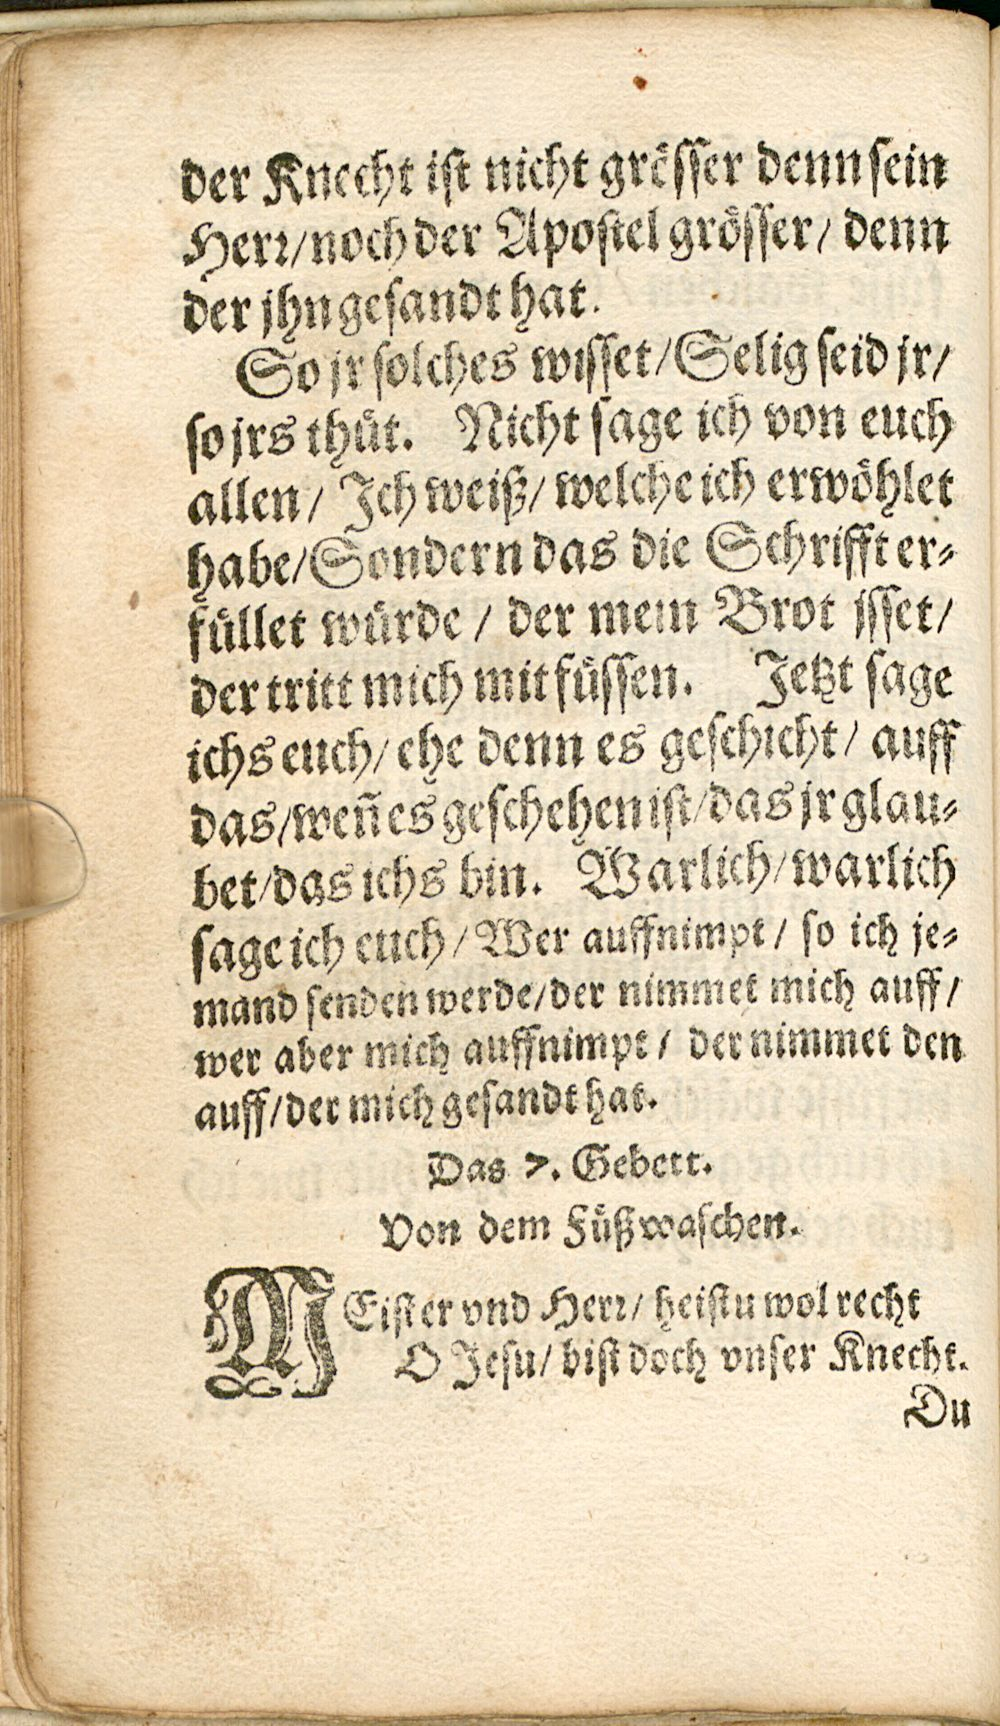 der Knecht ist nicht grösser denn sein
Herr/ noch der Apostel grösser/ denn
der jhn gesandt hat.
So jr solches wisset/ Selig seid jr/
so jrs thůt. Nicht sage ich von euch
allen/ Ich weiß/ welche ich erwöhlet
habe/ Sondern das die Schrifft er-
füllet würde/ der mein Brot jsset/
der tritt mich mit füssen. Jetzt sage
ichs euch/ ehe denn es geschicht/ auff
das/ weñ es geschehen ist/ das jr glau-
bet/ das ichs bin. Warlich/ warlich
sage ich euch/ Wer auffnimpt/ so ich je-
mand senden werde/ der nimmet mich auff/
wer aber mich auffnimpt/ der nimmet den
auff/ der mich gesandt hat.
Das 7. Gebett.
Von dem Fůßwaschen.
MEister vnd Herr/ heistu wol recht
O Jesu/ bist doch vnser Knecht.
Du